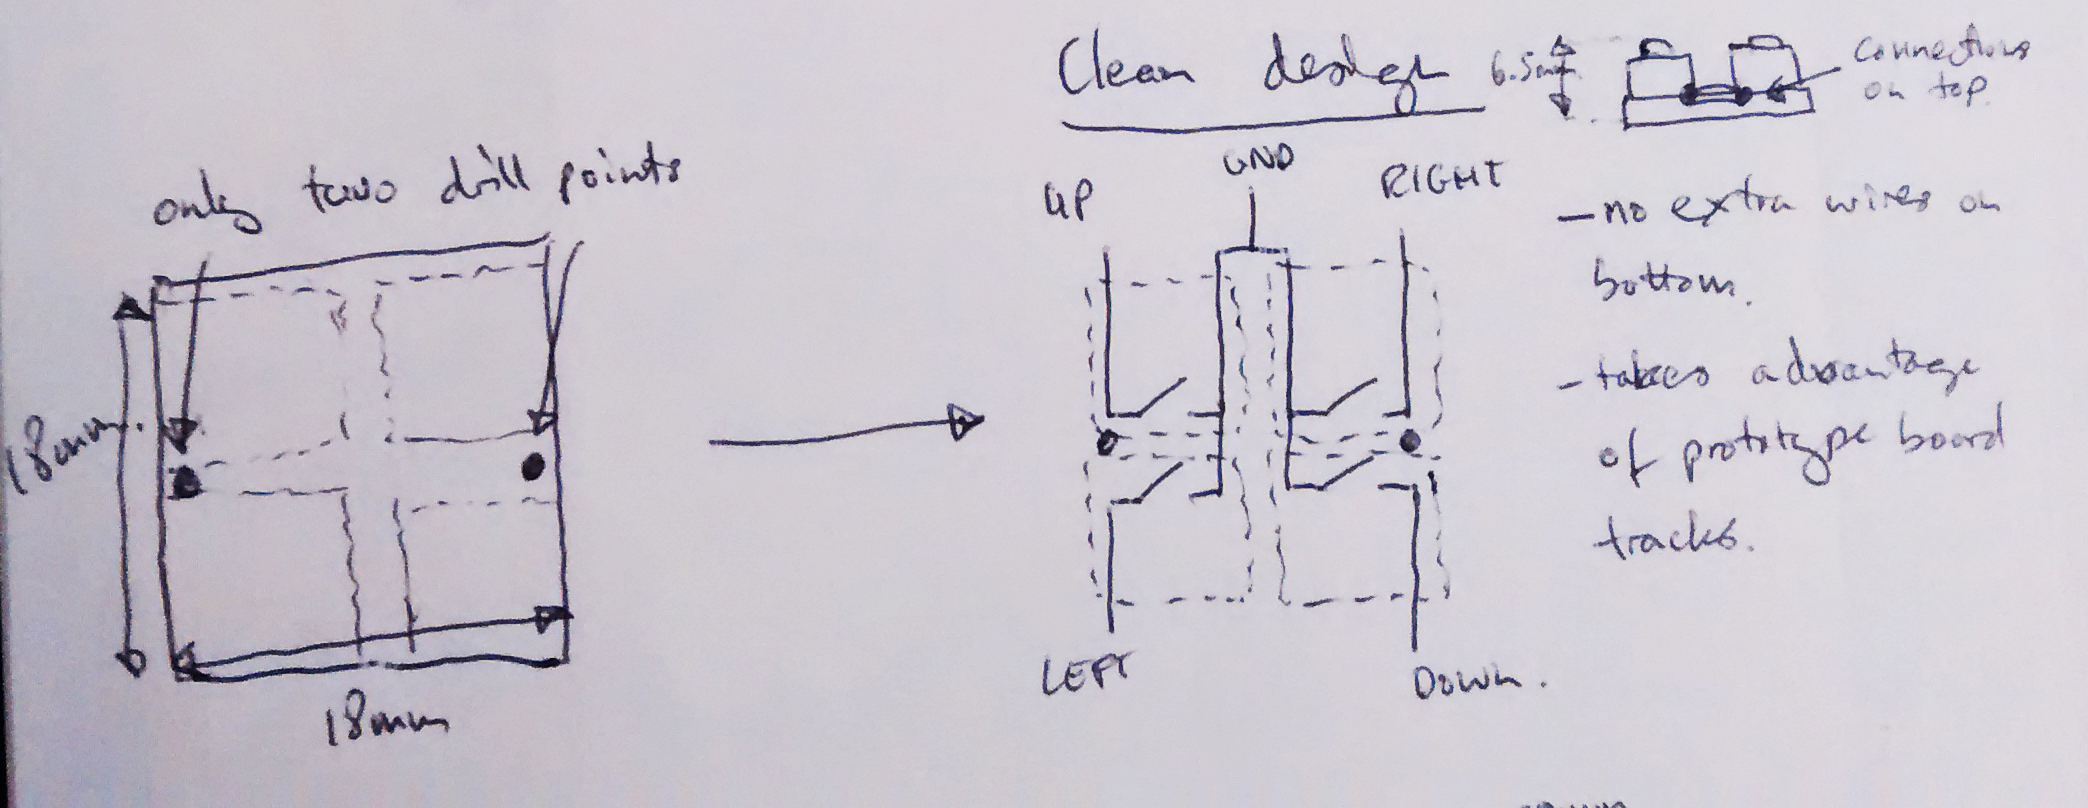 Clean design
6.5mm.
connections
on top.
only two drill points
18mm.
18mm
UP
GND
RIGHT
LEFT
DOWN.
- no extra wires on
bottom.
- takes advantage
of prototype board
tracks.